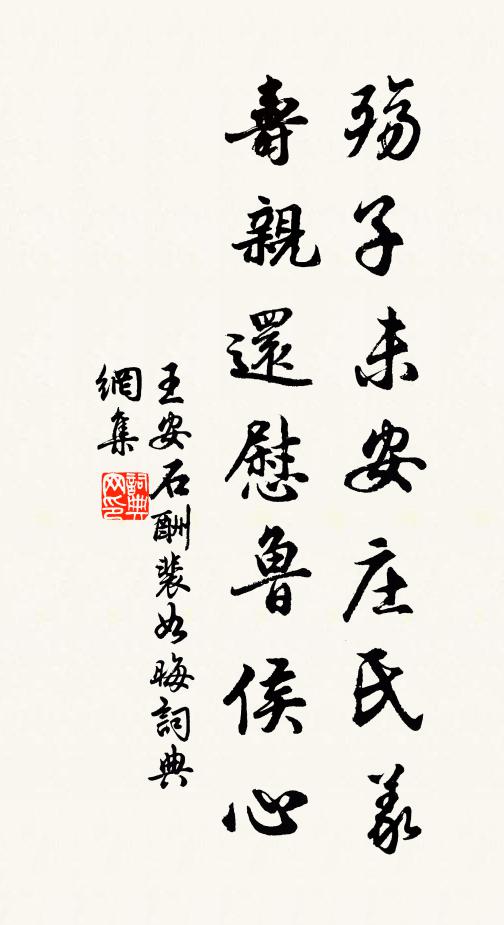 殤子未安庄氏義
壽親還慰魯侯心
王安石酬裴如晦詞典
網集
詞典
网印